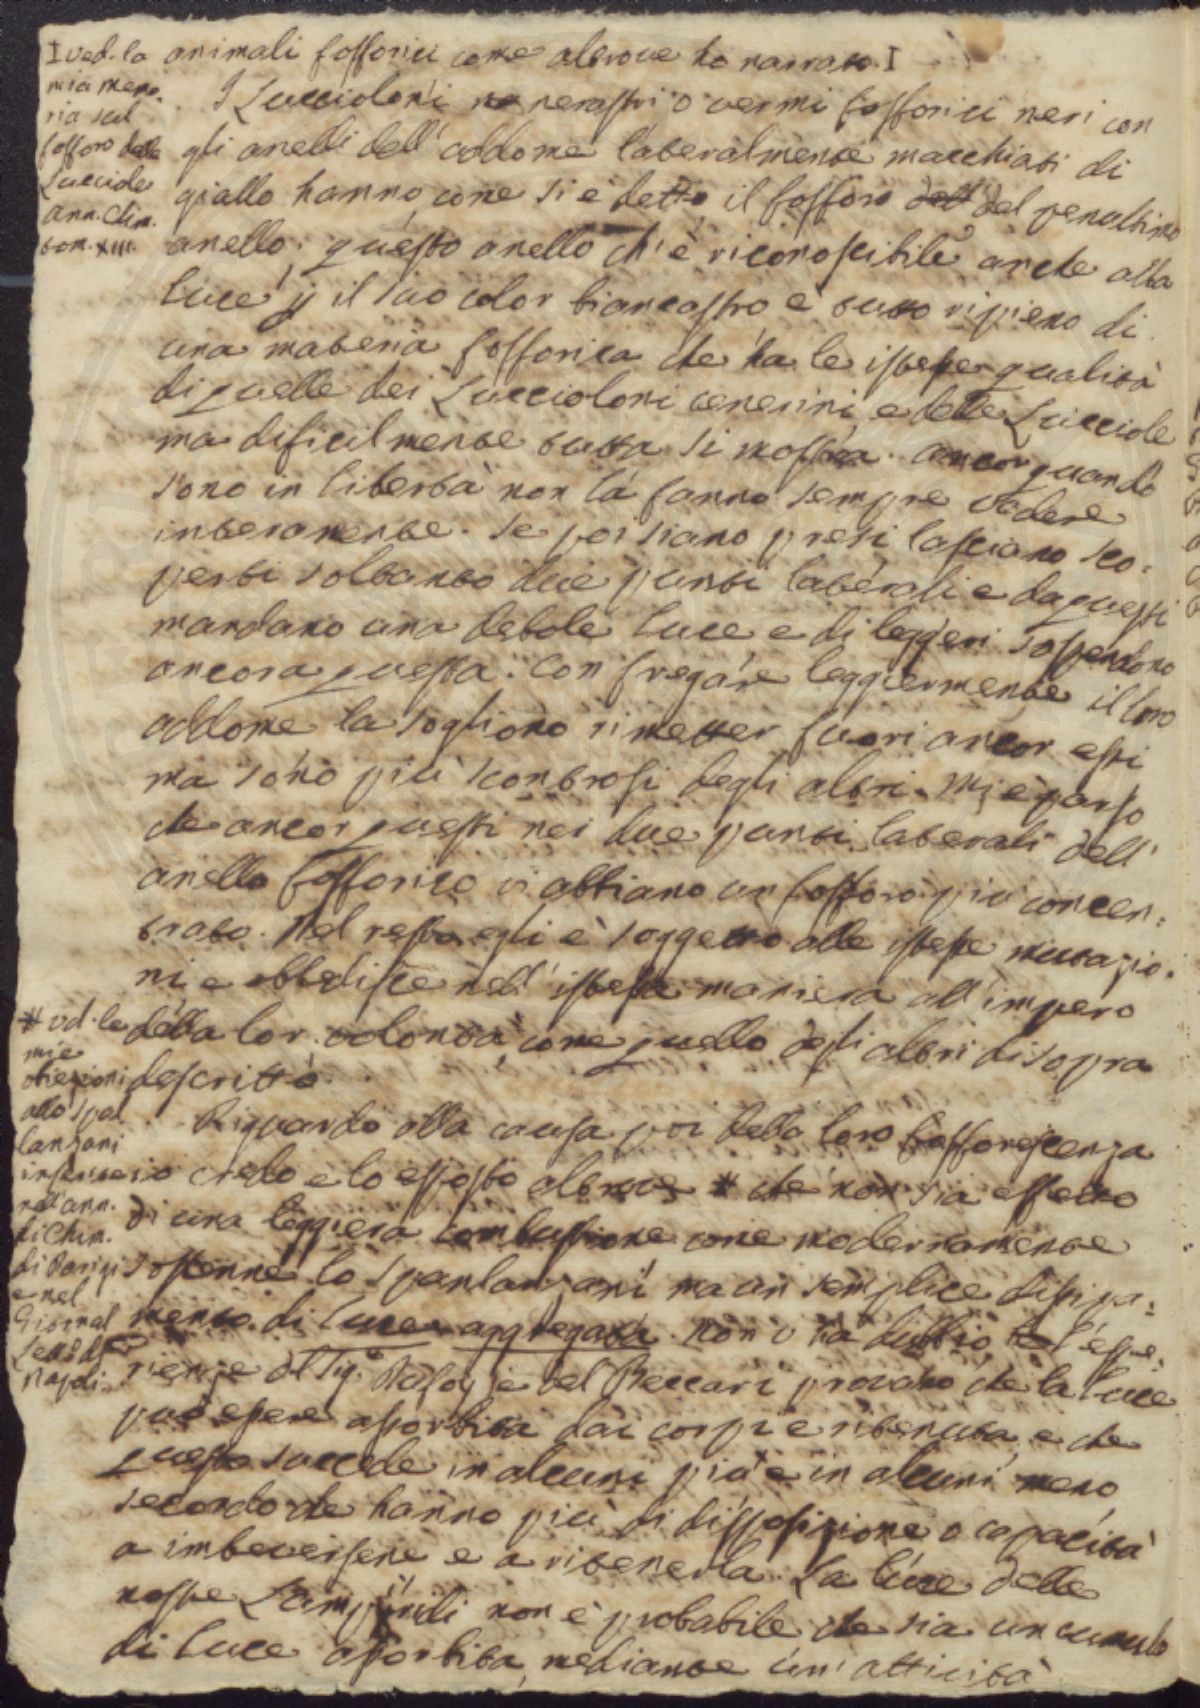 I ved. la
mia memo.
ria sul
fosforo delle
Lucciole
ann. Chim.
tom. XIII.
animali fosforici come altrove ho narrato. I
I Luccioloni nerastri o vermi fosforici neri con
gli anelli dell' addome lateralmente macchiati di
giallo hanno, come si è detto, il fosforo dell' del penultimo
anello: questo anello ch' è riconoscibile anche alla
luce p il suo color biancastro è tutto ripieno di
una materia fosforica che ha le istesse qualità
di quelle dei Luccioloni cenerini, e delle Lucciole
ma dificilmente tutta si mostra. ancor quando
sono in libertà non la fanno sempre vedere
interamente. Se poi siano presi lasciano sco:
perti soltanto due punti laterali e da questi
mandano una debole luce e di leggeri sospendono
ancora questa. Con fregare leggiermente il loro
addome la sogliono rimetter fuori ancor essi
ma sono più scontrosi degli altri. Mi è parso
che ancor questi nei due punti laterali dell'
anello fosforico vi abbiano un fosforo più concen:
trato. Nel resto egli è soggetto alle istesse mutazio:
ni e obbedisce nell' istessa maniera all' impero
della lor volontà, come quello degli altri di sopra
descritto.
* vd. le
mie
obiezioni
allo Spal
lanzani
inserite
nell' ann.
di Chim.
di Parigi
e nel
Giornal
Lett. di
Napoli.
Riguardo alla causa poi della loro fosforescenza
io credo e lo esposto altrove * che non sia effetto
di una leggiera combustione come modernamente
sostenne lo Spanlanzani ma un semplice dissipa:
mento di luce aggregata. Non v' ha dubbio l' espe:
rienze del Sig.e Dufay e del Beccari provano che la luce
può essere assorbita dai corpi e ritenuta, e che
questo succede in alcuni più e in alcuni meno
secondo che hanno più di disposizione o capacità
a imbeversene e a ritenerla. La luce delle
nostre Lampiridi non è probabile che sia un cumulo
di luce assorbita, mediante un' atticità